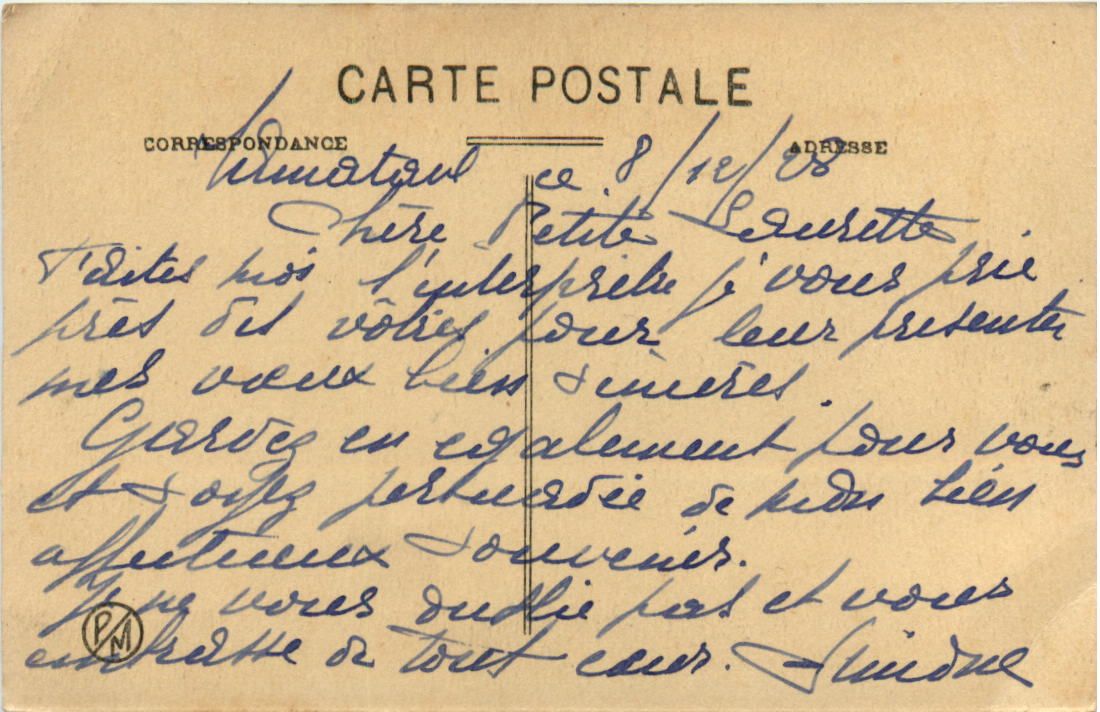 CARTE POSTALE
CORRESPONDANCE
ADRESSE
ce 8/12/28
Chère Petite Laurette
Faites moi l'interprète je vous prie
près des vôtres pour leur présenter
mes vœux bien sincères.
Gardez en également pour vous
et soyez persuadée de mon bien
affectueux souvenir.
Je ne vous oublie pas et vous
embrasse de tout cœur. Simone
P/M